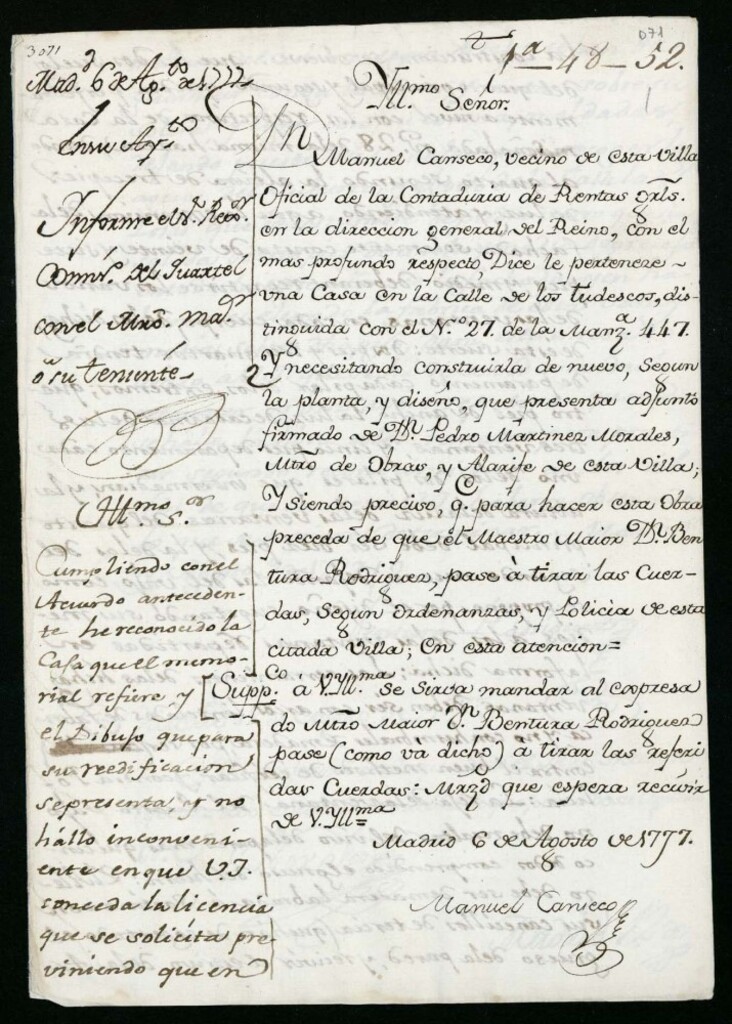 3071
071
1ª 48-52.
Mad.d 6 de Ag.to de 1777
En su Ay.to
Informe el S.r Reg.or
Commis.o del Quartel
con el Mro. Ma.or
o su Teniente
Yll.mo s.or
Cumpliendo con el
Acuerdo anteceden-
te he reconocido la
Casa que el memo-
rial refiere, y
el Dibujo que para
su reedificacion
se presenta, y no
hállo inconveni-
ente en que V.I.
conceda la licencia
que se solicita pre-
viniendo que en
Yll.mo Señor.
Dn Manuel Canseco, vecino de esta Villa
Oficial de la Contaduria de Rentas grls.
en la direccion general del Reino, con el
mas profundo respecto, Dice le perteneze
una Casa en la Calle de los tudescos, dis-
tinguida con el N.º 27. de la Manz.ª 447.
Y necesitando construirla de nuevo, segun
la planta, y diseño, que presenta adjunto
firmado de D.n Pedro Martinez Morales,
Mtro de Obras, y Alarife de esta Villa;
Y siendo preciso, q. para hacer esta Obra
preceda de que el Maestro Maior D.n Ben
tura Rodriguez, pase à tirar las Cuer-
das, segun Ordenanzas, y Policia de esta
citada Villa; En esta atencion=
Supp.co à V.Yll.ma se sirva mandar al expresa
do Mtro Maior D.n Bentura Rodriguez
pase (como và dicho) à tirar las referi
das Cuerdas: Mrzd que espera recivir
de V.Yll.ma
Madrid 6 de Agosto de 1777.
Manuel Canseco